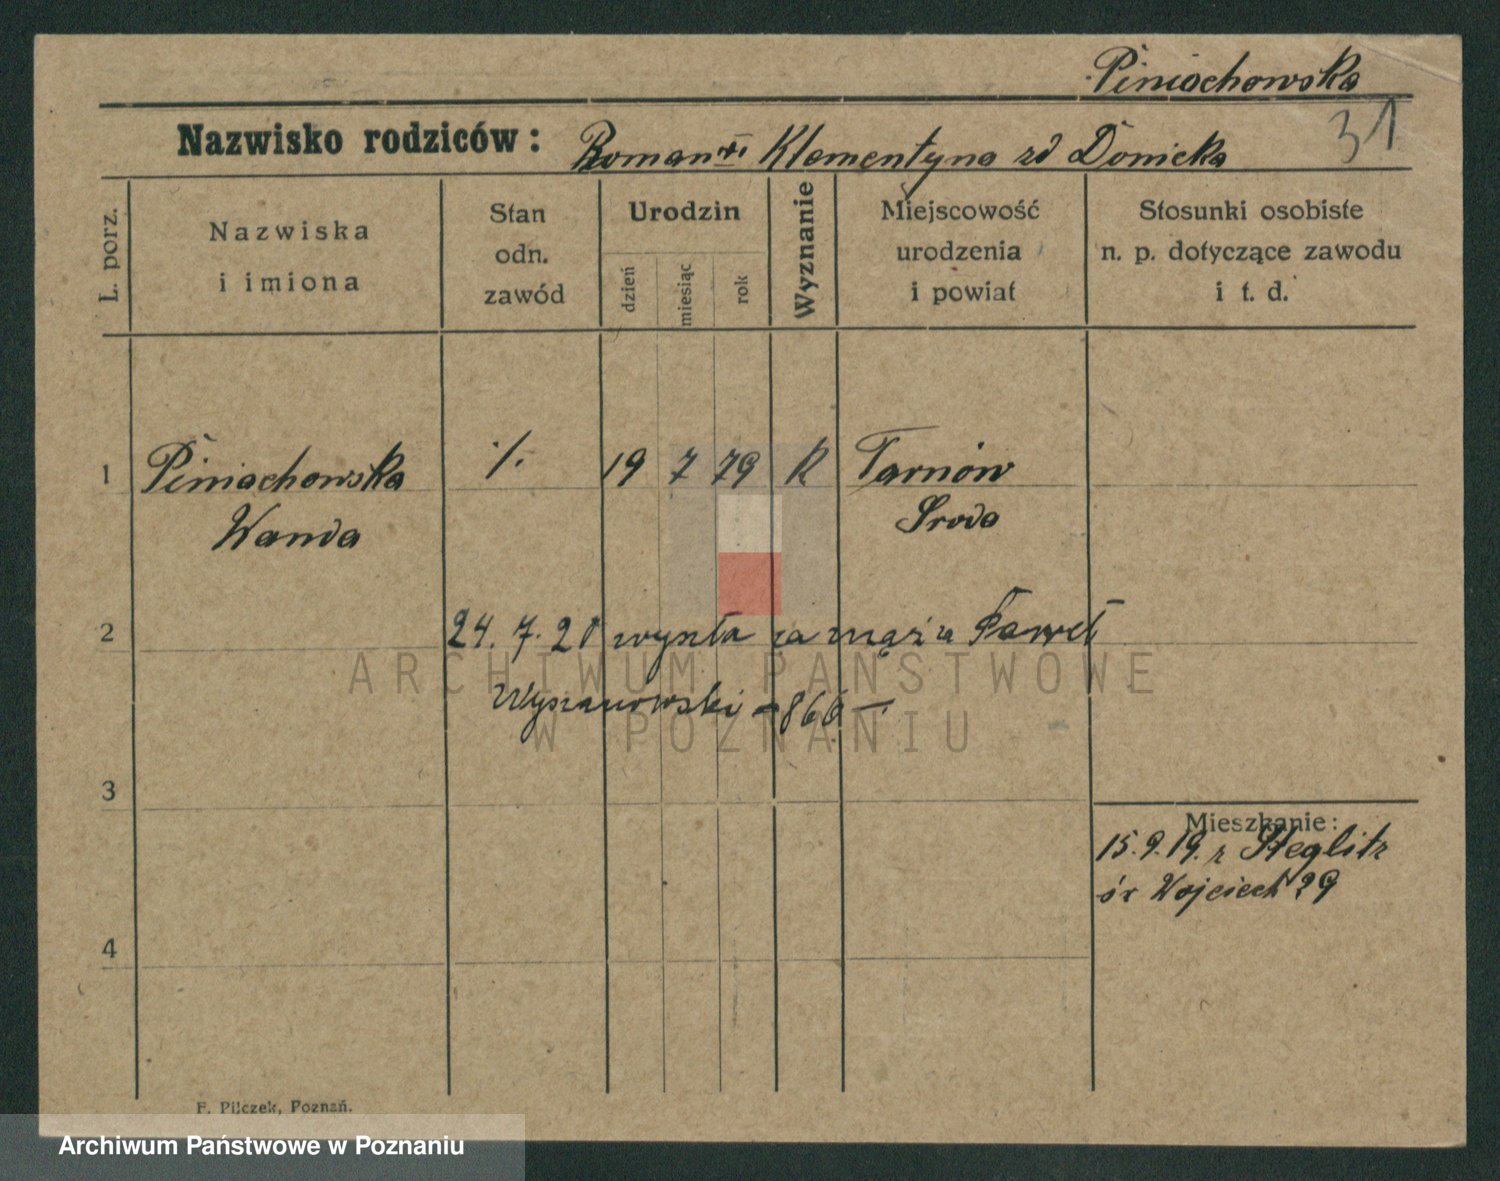 Piniachowska
31
Nazwisko rodziców: Roman Klementyna zd Donicka
L. porz.
Nazwiska
i imiona
Stan
odn.
zawód
Urodzin
dzień
miesiąc
rok
Wyznanie
Miejscowość
urodzenia
i powiat
Stosunki osobiste
n. p. dotyczące zawodu
i t. d.
1 Piniachowska ./. 19 7 79 K Tarnów
Wanda Sroda
2 24. 7. 21 wyszła za mąż za Paweł
ARCHIWUM PAŃSTWOWE
Wyszanowski - 866 -
W POZNANIU
3
Mieszkanie:
15.9.19. z Steglitz
św Wojciech 29
4
F. Pilczek, Poznań.
Archiwum Państwowe w Poznaniu